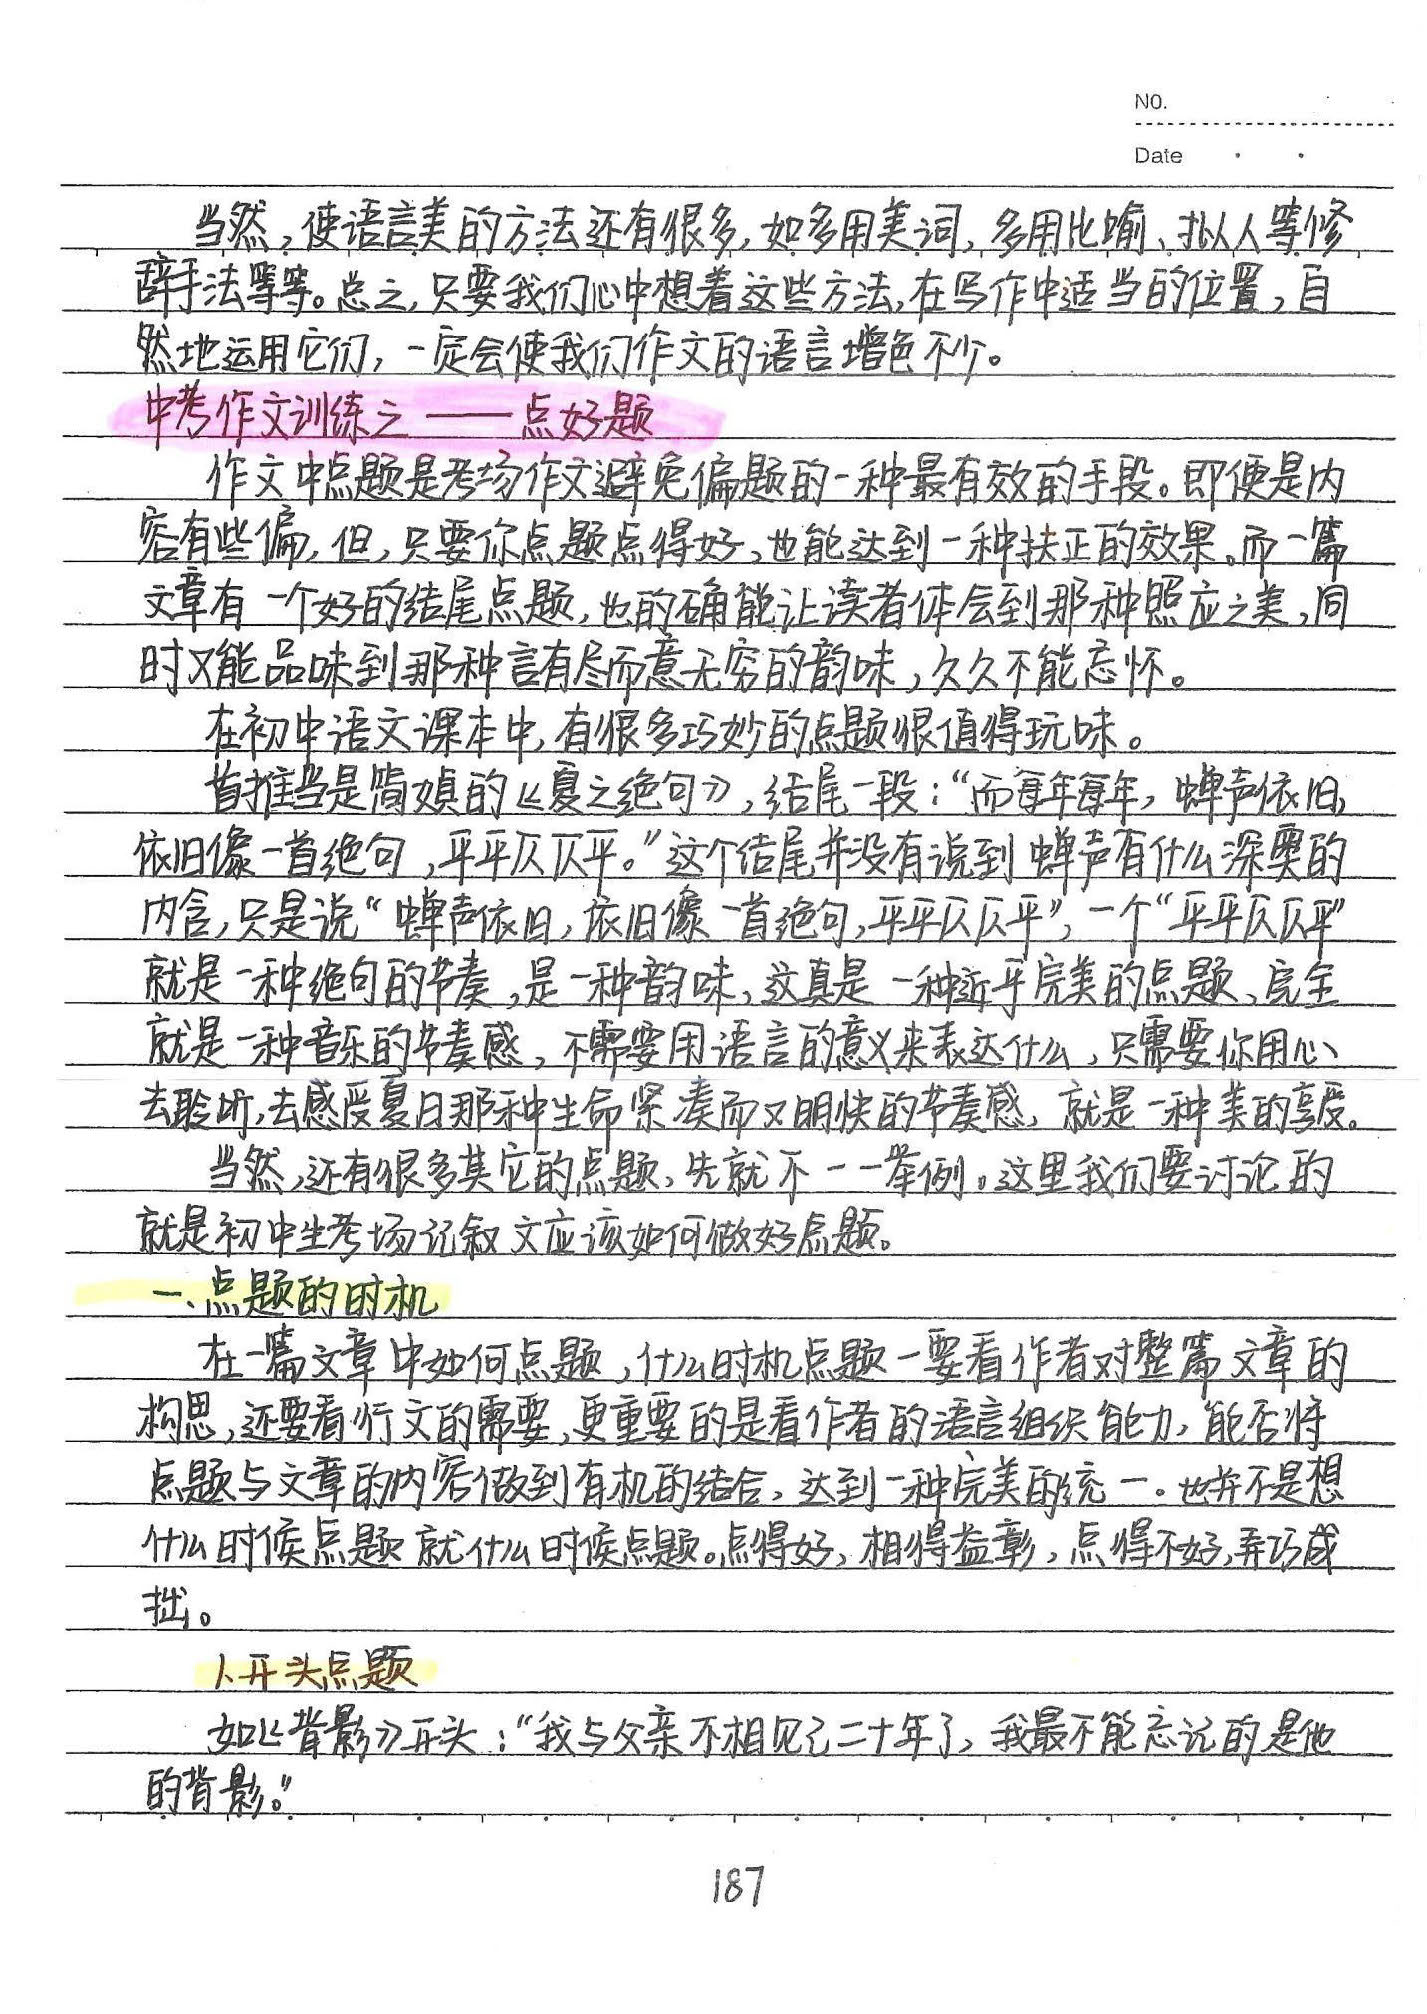 NO.
Date
当然，使语言美的方法还有很多，如多用美词，多用比喻、拟人等修
辞手法等等。总之，只要我们心中想着这些方法，在写作中适当的位置，自
然地运用它们，一定会使我们作文的语言增色不少。
中考作文训练之——点好题
作文中点题是考场作文避免偏题的一种最有效的手段。即便是内
容有些偏，但，只要你点题点得好，也能达到一种扶正的效果。而一篇
文章有一个好的结尾点题，也的确能让读者体会到那种照应之美，同
时又能品味到那种言有尽而意无穷的韵味，久久不能忘怀。
在初中语文课本中，有很多巧妙的点题很值得玩味。
首推当是简媜的《夏之绝句》，结尾一段：“而每年每年，蝉声依旧，
依旧像一首绝句，平平仄仄平。”这个结尾并没有说到蝉声有什么深奥的
内含，只是说“蝉声依旧，依旧像一首绝句，平平仄仄平”，一个“平平仄仄平”
就是一种绝句的节奏，是一种韵味，这真是一种近乎完美的点题、完全
就是一种音乐的节奏感，不需要用语言的意义来表达什么，只需要你用心
去聆听，去感受夏日那种生命紧凑而又明快的节奏感，就是一种美的享受。
当然，还有很多其它的点题，先就不一一举例。这里我们要讨论的
就是初中生考场记叙文应该如何做好点题。
一、点题的时机
在一篇文章中如何点题，什么时机点题一要看作者对整篇文章的
构思，还要看行文的需要，更重要的是看作者的语言组织能力，能否将
点题与文章的内容做到有机的结合，达到一种完美的统一。也并不是想
什么时候点题就什么时候点题。点得好，相得益彰，点得不好，弄巧成
拙。
1.开头点题
如《背影》开头：“我与父亲不相见已二十年了，我最不能忘记的是他
的背影。”
187